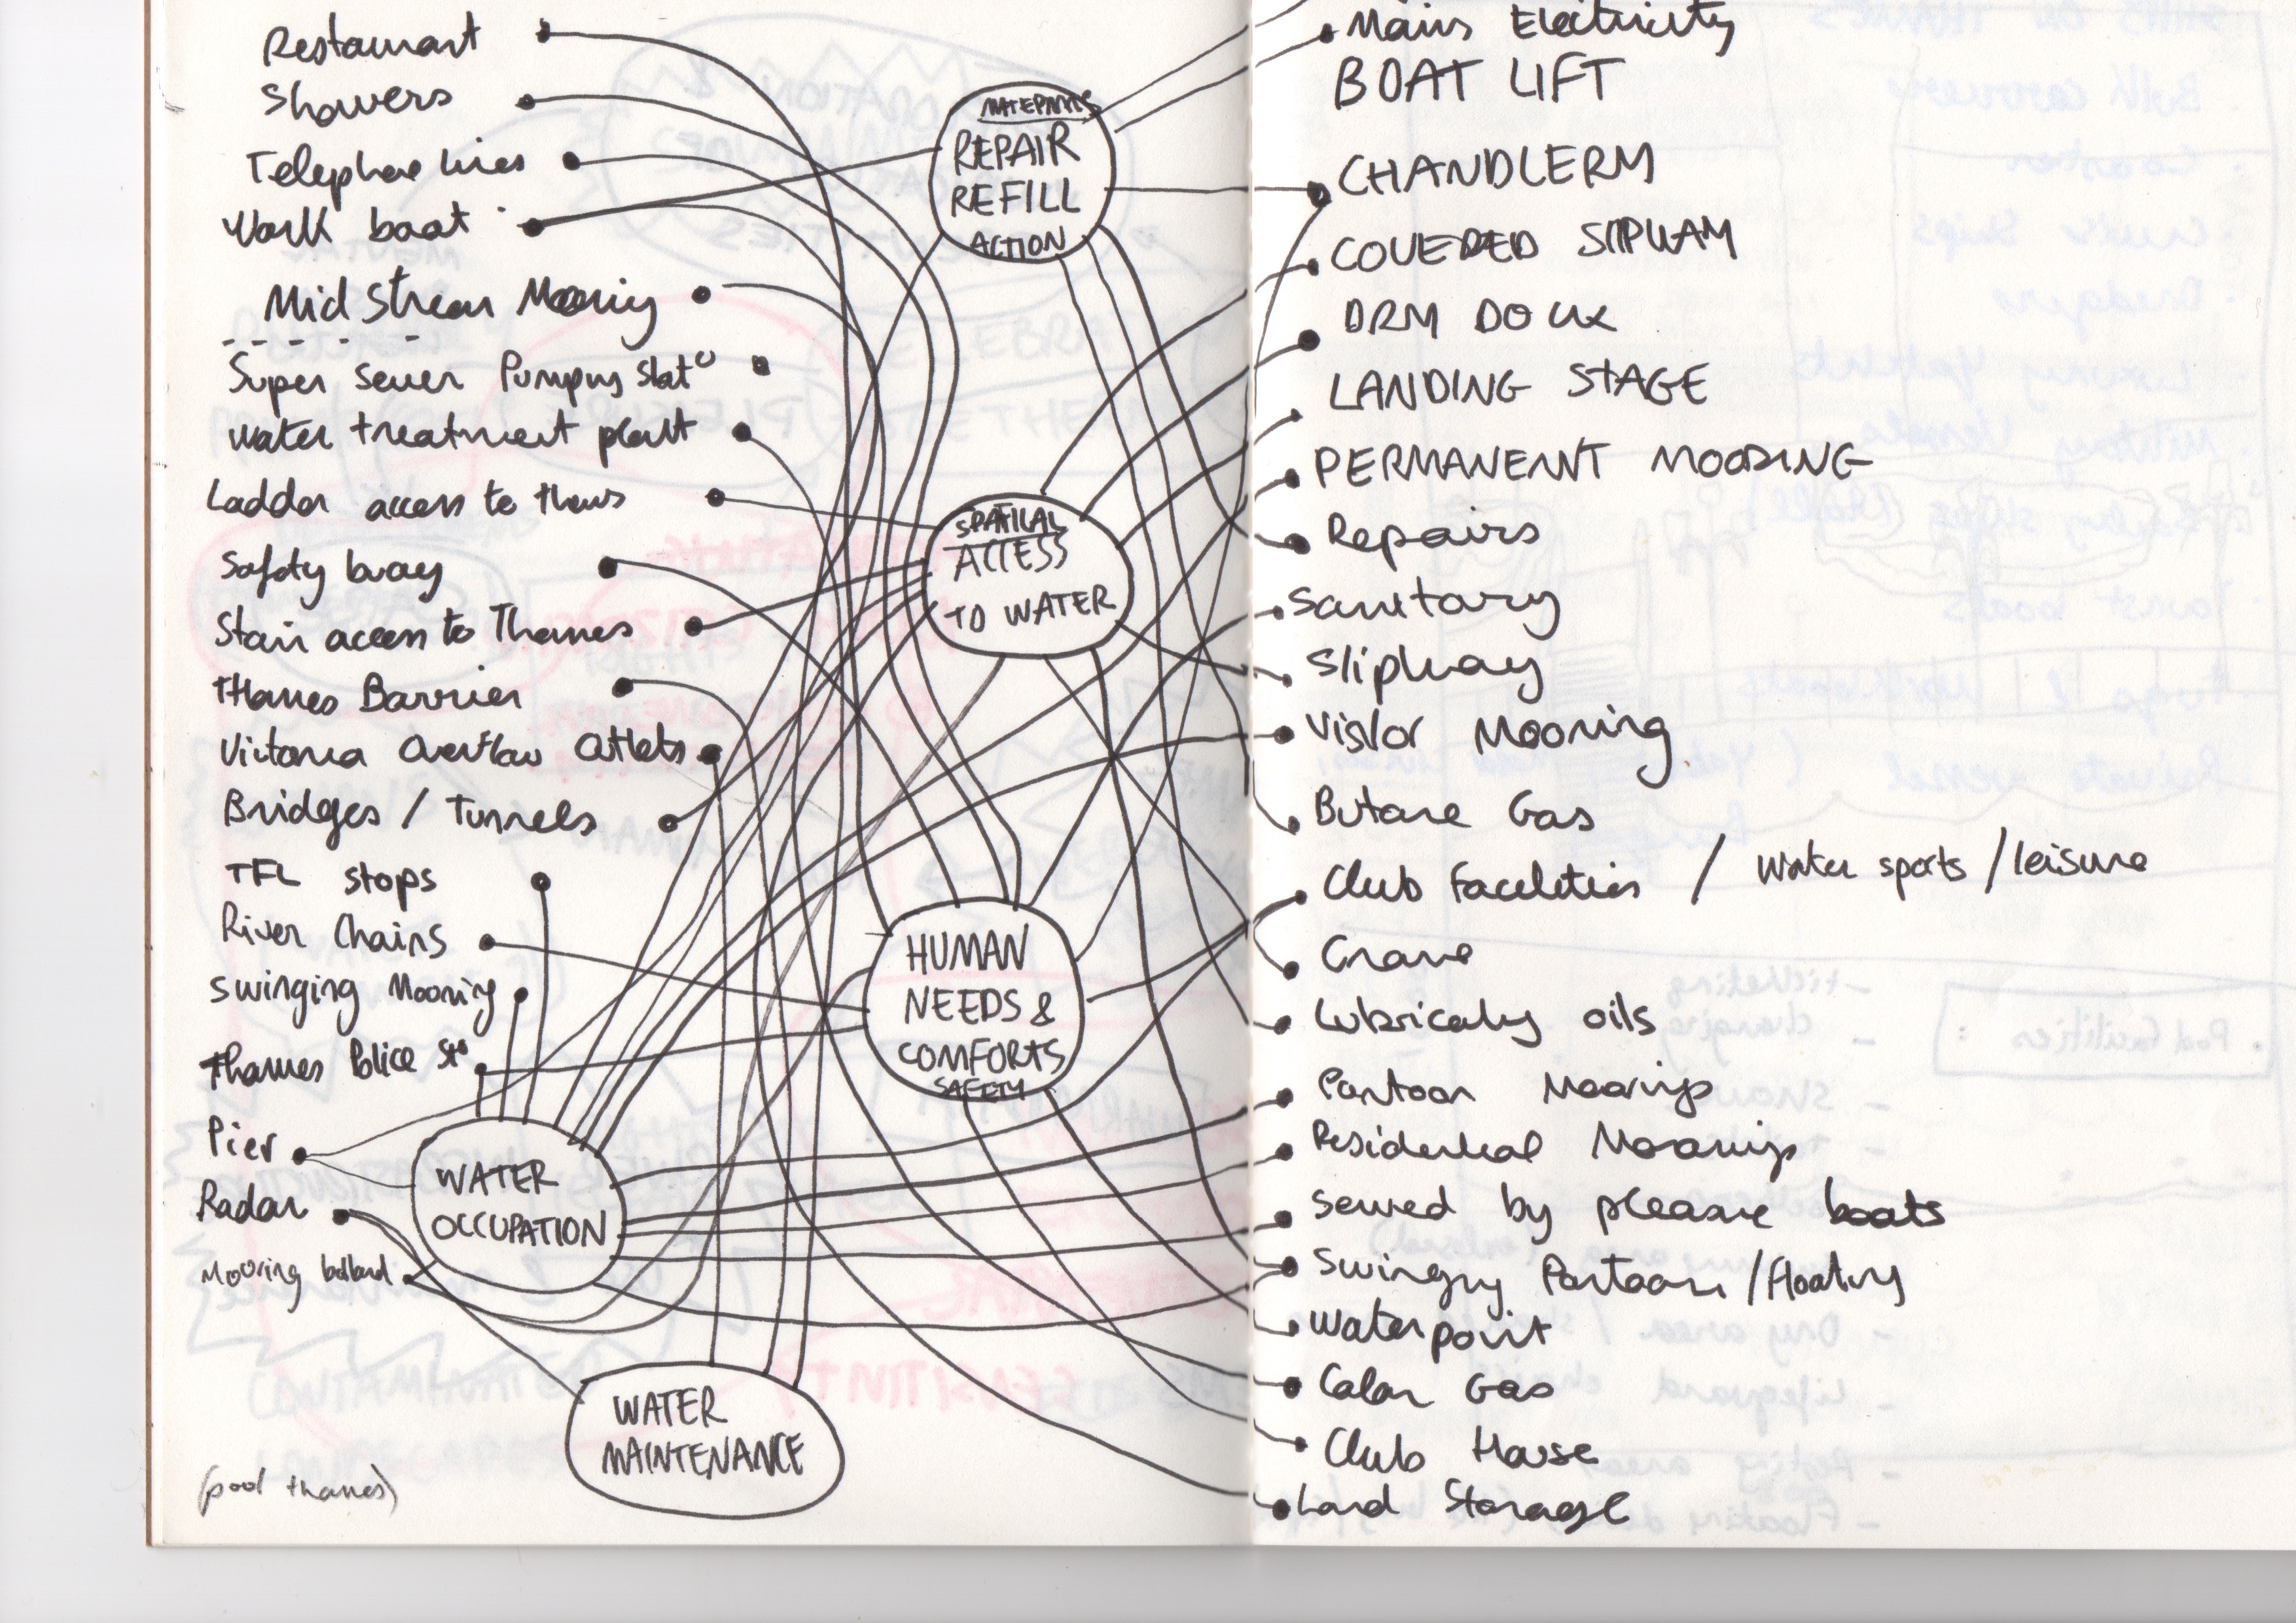 Restaurant
Showers
Telephone lines
Work boat
Mid Stream Mooring
Super Sewer Pumping Stat°
Water treatment plant
Ladder access to thames
Safety buoy
Stair access to Thames
Thames Barrier
Victoria Overflow Outlets
Bridges / Tunnels
TFL stops
River Chains
Swinging Mooring
Thames Police St°
Pier
Radar
Mooring bollard
(pool thames)
REPAIR
REFILL
ACTION
SPATICAL
ACCESS
TO WATER
HUMAN
NEEDS &
COMFORTS
SAFETY
WATER
OCCUPATION
WATER
MAINTENANCE
Mains Electricity
BOAT LIFT
CHANDLERY
COVERED SLIPWAY
DRY DOCK
LANDING STAGE
PERMANENT MOORING
Repairs
Sanitary
Slipway
Visitor Mooring
Butane Gas
Club Facilities / Water sports / leisure
Crane
Lubricating oils
Pontoon Moorings
Residential Moorings
Served by pleasure boats
Swinging Pontoon / Floating
Water point
Calor Gas
Club House
Land Storage